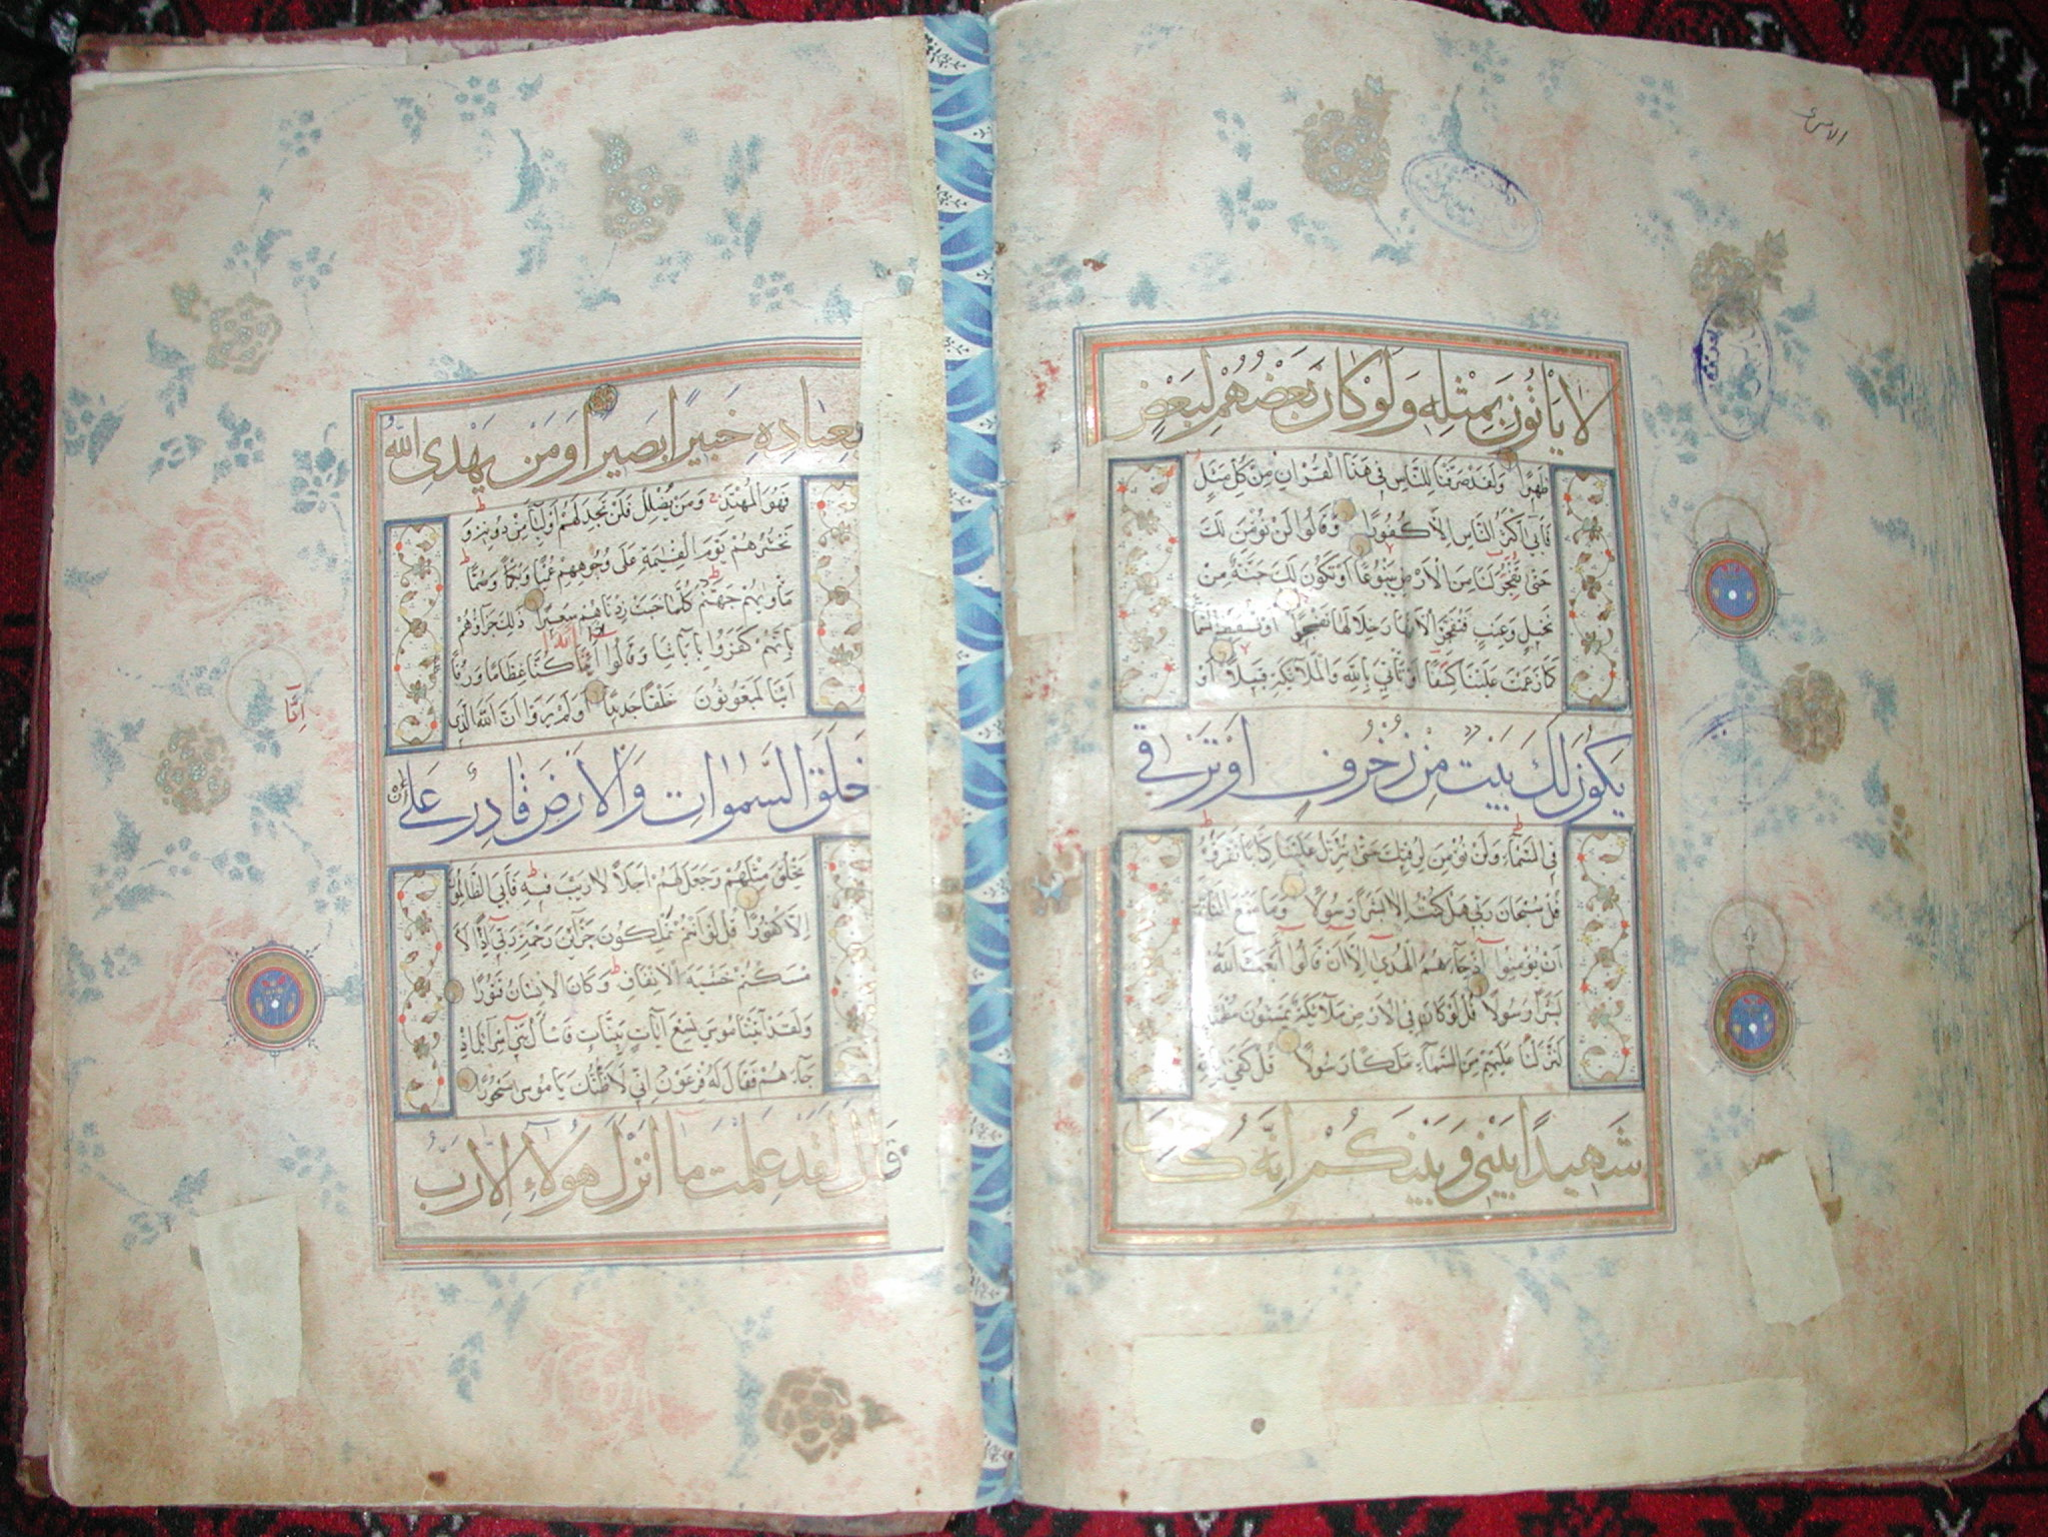 الاسرى
لا يَأْتُونَ بِمِثْلِهِ وَلَوْ كَانَ بَعْضُهُمْ لِبَعْضٍ
ظَهِيرًا وَلَقَدْ صَرَّفْنَا لِلنَّاسِ فِي هَذَا الْقُرْآنِ مِنْ كُلِّ مَثَلٍ
فَأَبَى أَكْثَرُ النَّاسِ إِلَّا كُفُورًا وَقَالُوا لَنْ نُؤْمِنَ لَكَ
حَتَّى تَفْجُرَ لَنَا مِنَ الْأَرْضِ يَنْبُوعًا أَوْ تَكُونَ لَكَ جَنَّةٌ مِنْ
نَخِيلٍ وَعِنَبٍ فَتُفَجِّرَ الْأَنْهَارَ خِلَالَهَا تَفْجِيرًا أَوْ تُسْقِطَ السَّمَاءَ
كَمَا زَعَمْتَ عَلَيْنَا كِسَفًا أَوْ تَأْتِيَ بِاللَّهِ وَالْمَلَائِكَةِ قَبِيلًا أَوْ
يَكُونَ لَكَ بَيْتٌ مِنْ زُخْرُفٍ أَوْ تَرْقَى
فِي السَّمَاءِ وَلَنْ نُؤْمِنَ لِرُقِيِّكَ حَتَّى تُنَزِّلَ عَلَيْنَا كِتَابًا نَقْرَؤُهُ
قُلْ سُبْحَانَ رَبِّي هَلْ كُنْتُ إِلَّا بَشَرًا رَسُولًا وَمَا مَنَعَ النَّاسَ
أَنْ يُؤْمِنُوا إِذْ جَاءَهُمُ الْهُدَى إِلَّا أَنْ قَالُوا أَبَعَثَ اللَّهُ
بَشَرًا رَسُولًا قُلْ لَوْ كَانَ فِي الْأَرْضِ مَلَائِكَةٌ يَمْشُونَ مُطْمَئِنِّينَ
لَنَزَّلْنَا عَلَيْهِمْ مِنَ السَّمَاءِ مَلَكًا رَسُولًا قُلْ كَفَى بِاللَّهِ
شَهِيدًا بَيْنِي وَبَيْنَكُمْ إِنَّهُ كَانَ
بِعِبَادِهِ خَبِيرًا بَصِيرًا وَمَنْ يَهْدِي اللَّهُ
فَهُوَ الْمُهْتَدِ وَمَنْ يُضْلِلْ فَلَنْ تَجِدَ لَهُمْ أَوْلِيَاءَ مِنْ دُونِهِ وَ
نَحْشُرُهُمْ يَوْمَ الْقِيمَةِ عَلَى وُجُوهِهِمْ عُمْيًا وَبُكْمًا وَصُمًّا
مَأْوَاهُمْ جَهَنَّمُ كُلَّمَا خَبَتْ زِدْنَاهُمْ سَعِيرًا ذَلِكَ جَزَاؤُهُمْ
بِأَنَّهُمْ كَفَرُوا بِآيَاتِنَا وَقَالُوا أَئِذَا كُنَّا عِظَامًا وَرُفَاتًا
أَئِنَّا لَمَبْعُوثُونَ خَلْقًا جَدِيدًا أَوَلَمْ يَرَوْا أَنَّ اللَّهَ الَّذِي
خَلَقَ السَّمَوَاتِ وَالْأَرْضَ قَادِرٌ عَلَى أَنْ
يَخْلُقَ مِثْلَهُمْ وَجَعَلَ لَهُمْ أَجَلًا لَا رَيْبَ فِيهِ فَأَبَى الظَّالِمُونَ
إِلَّا كُفُورًا قُلْ لَوْ أَنْتُمْ تَمْلِكُونَ خَزَائِنَ رَحْمَةِ رَبِّي إِذًا لَأَ
مْسَكْتُمْ خَشْيَةَ الْإِنْفَاقِ وَكَانَ الْإِنْسَانُ قَتُورًا
وَلَقَدْ آتَيْنَا مُوسَى تِسْعَ آيَاتٍ بَيِّنَاتٍ فَاسْأَلْ بَنِي إِسْرَائِيلَ إِذْ
جَاءَهُمْ فَقَالَ لَهُ فِرْعَوْنُ إِنِّي لَأَظُنُّكَ يَا مُوسَى مَسْحُورًا
قَالَ لَقَدْ عَلِمْتَ مَا أَنْزَلَ هَؤُلَاءِ إِلَّا رَبُّ